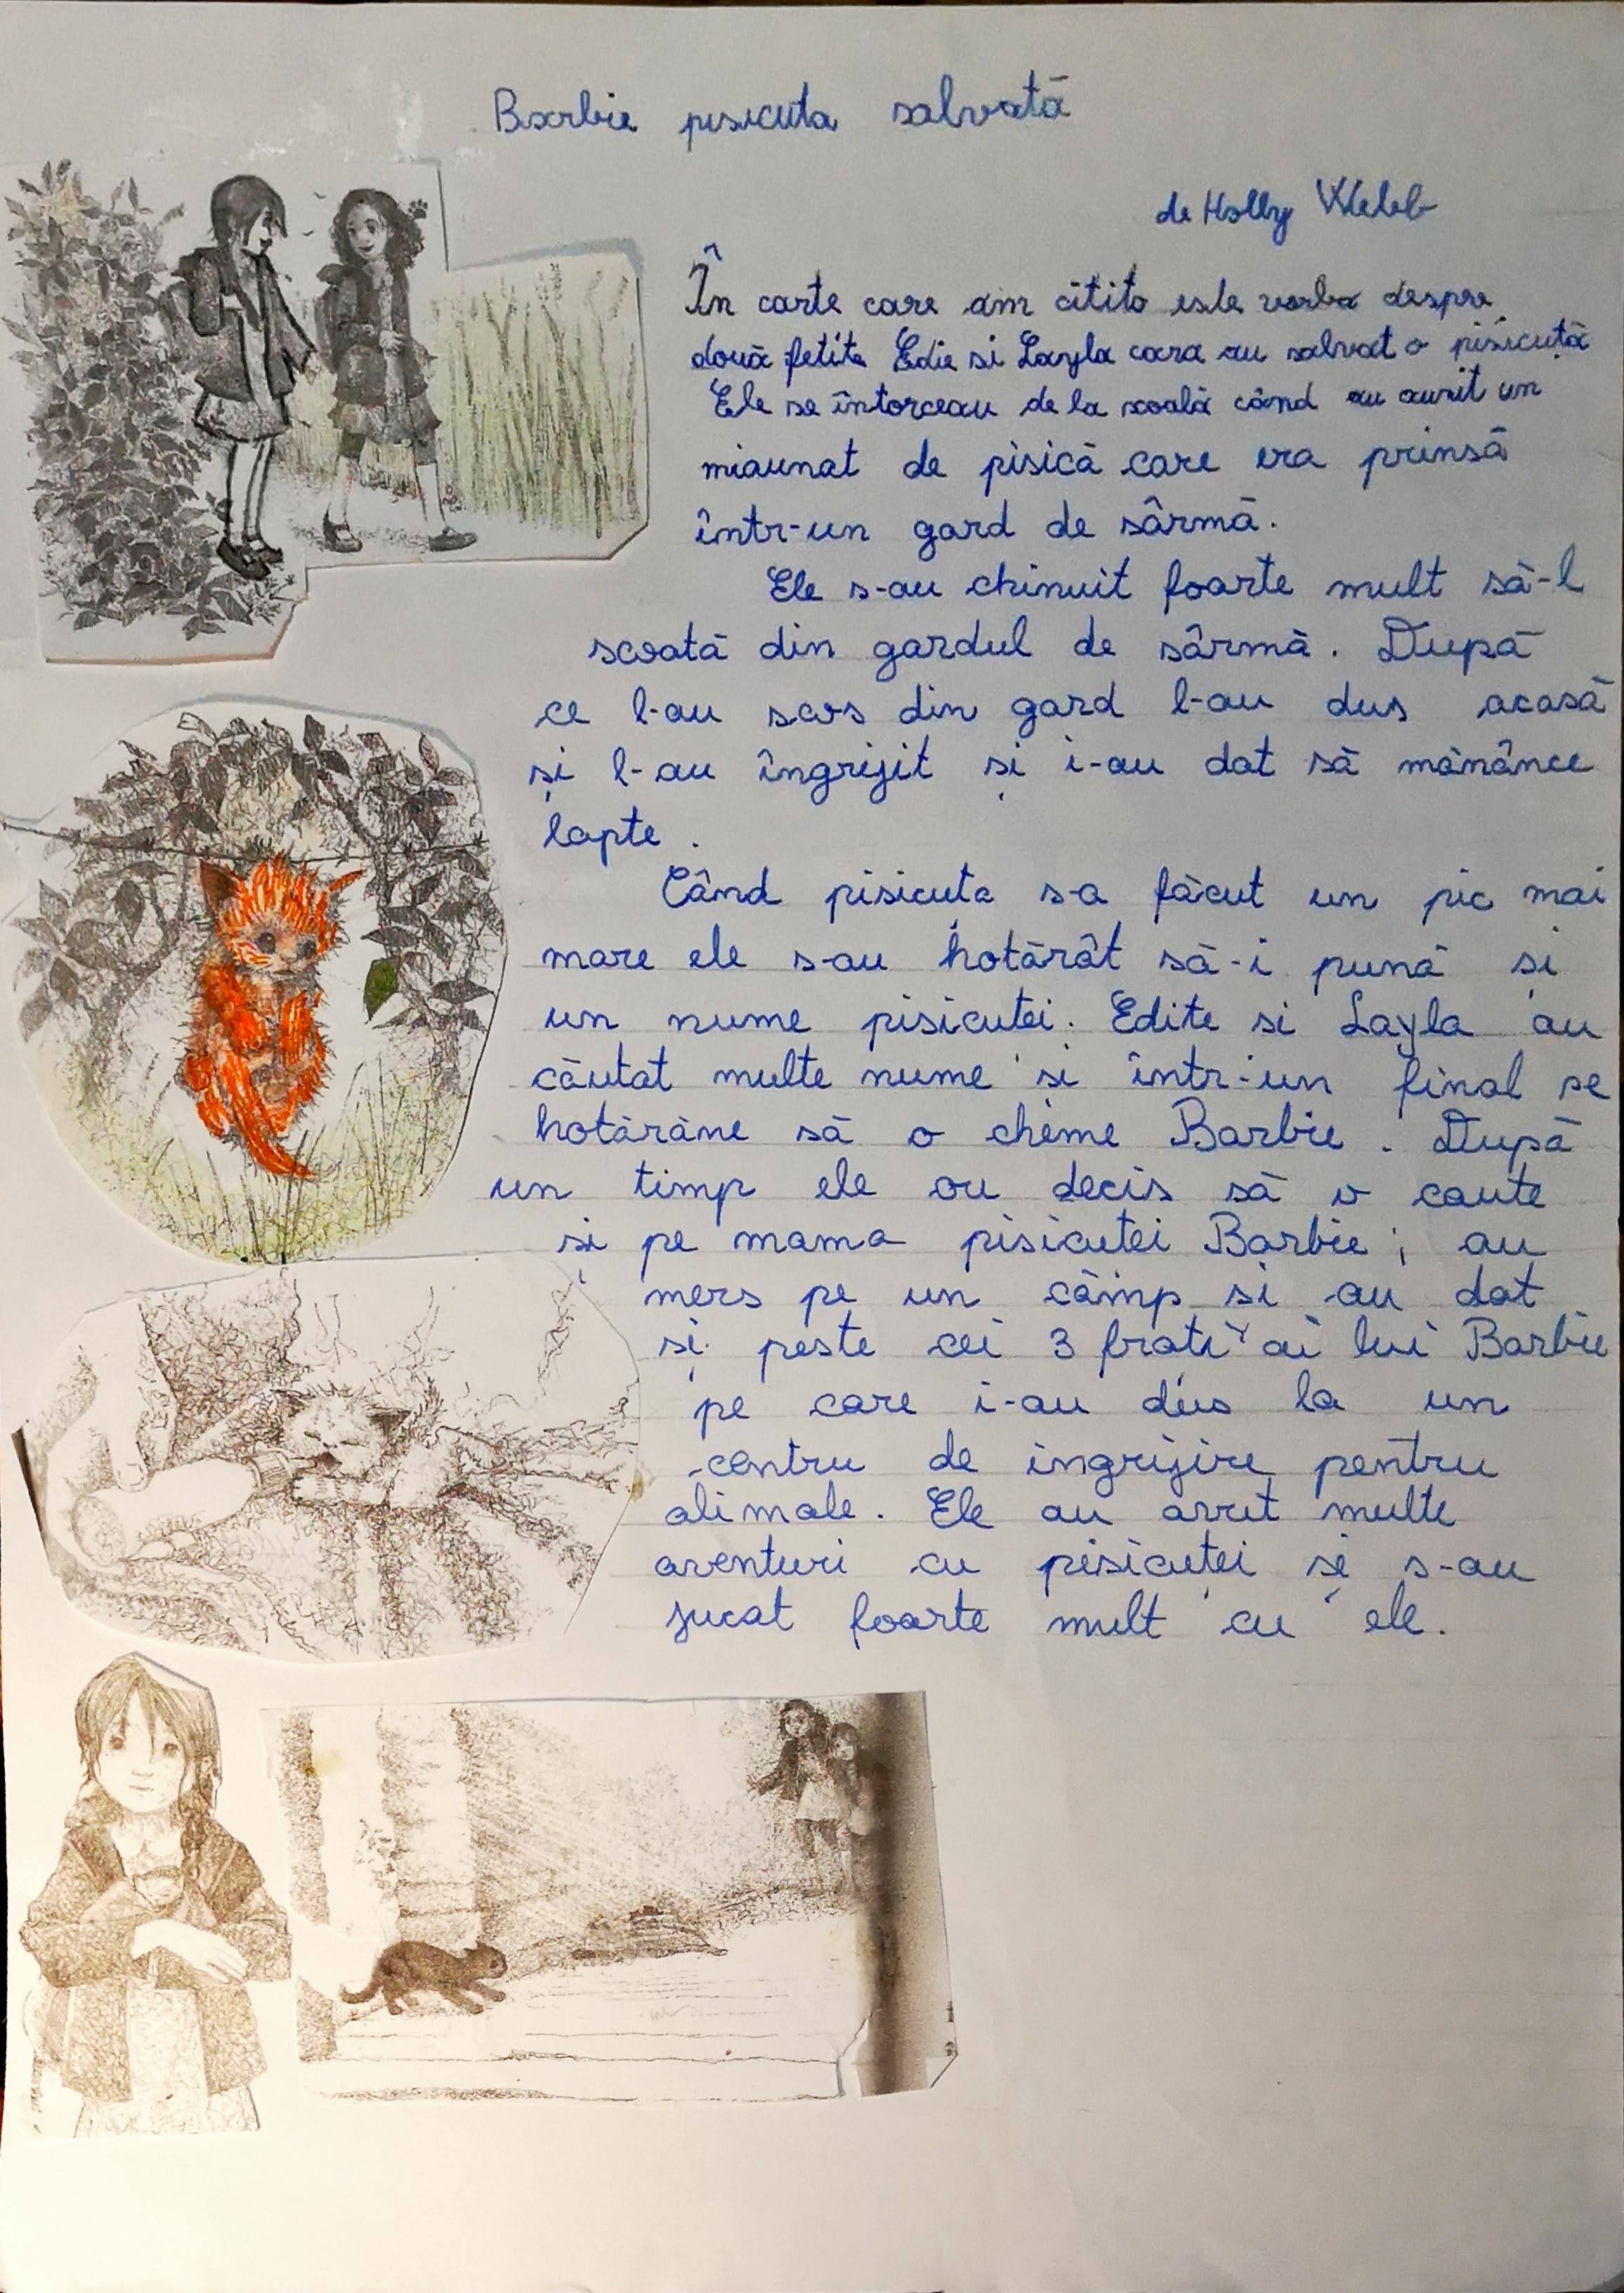 Barbie pisicuta salvată
de Holly Webb
În carte care am citito este vorba despre
două fetite Edie si Layla cara au salvat o pisicuță
Ele se întorceau de la scoală când au auzit un
miaunat de pisică care era prinsă
într-un gard de sârmă.
Ele s-au chinuit foarte mult să-l
scoată din gardul de sârmă. După
ce l-au scos din gard l-au dus acasă
și l-au îngrijit și i-au dat să mănânce
lapte.
Când pisicuța s-a făcut un pic mai
mare ele s-au hotărât să-i pună și
un nume pisicutei. Edite si Layla au
căutat multe nume si într-un final se
hotărăne să o cheme Barbie. După
un timp ele au decis să o caute
și pe mama pisicutei Barbie; au
mers pe un câmp si au dat
și peste cei 3 frati ai lui Barbie
pe care i-au dus la un
centru de ingrijire pentru
alimale. Ele au avut multe
aventuri cu pisicuței și s-au
jucat foarte mult cu ele.